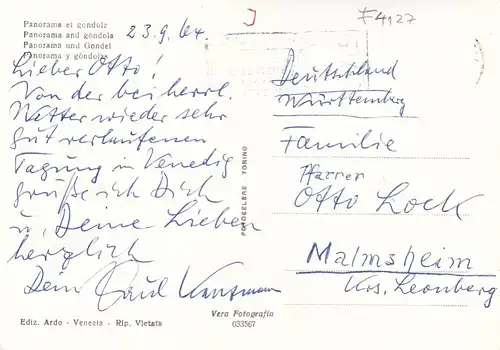 Panorama et gondole
Panorama and gondola
Panorama und Gondel
Panorama y góndolas
23.9.64.
Lieber Otto!
Von der bei herrl.
Wetter wieder sehr
gut verlaufenen
Tagung in Venedig
grüße ich Dich
u. Deine Lieben
herzlich
Dein Paul
Ediz. Ardo - Venezia - Rip. Vietata
FOTOCELERE TORINO
Vera Fotografia
033567
F4127
Deutschland
Württemberg
Familie
Pfarrer
Otto Lock
Malmsheim
Krs. Leonberg